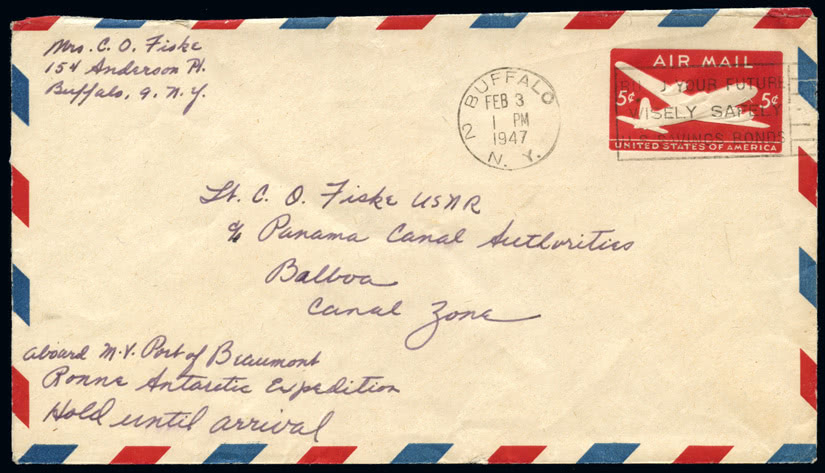 Mrs. C. O. Fiske
154 Anderson Pl.
Buffalo, 9. N. Y.
BUFFALO
FEB 3
1 PM
1947
2 N. Y.
AIR MAIL
5¢ 5¢
UNITED STATES OF AMERICA
YOUR FUTURE
WISELY SAFELY
SAVINGS BONDS
Lt. C. O. Fiske USNR
c/o Panama Canal Authorities
Balboa
Canal Zone
aboard M.V. Port of Beaumont
Ronne Antarctic Expedition
Hold until arrival